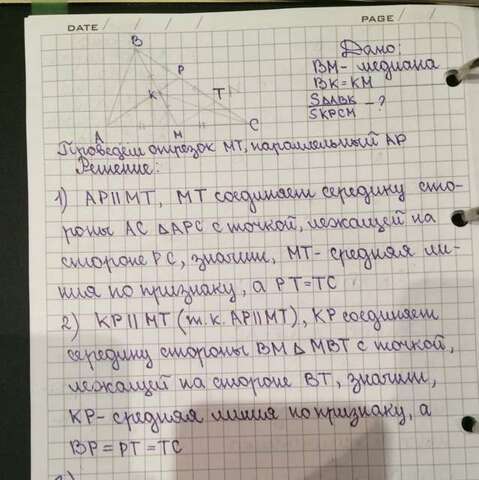 DATE / / PAGE /
B
P
K
T
A
M
C
Дано:
BM - медиана
BK = KM
S∆ABK / SKPCM - ?
Проведем отрезок MT, параллельный AP
Решение:
1) AP || MT, MT соединяет середину сто-
роны AC ∆ APC с точкой, лежащей на
стороне PC, значит, MT - средняя ли-
ния по признаку, а PT = TC
2) KP || MT (т.к. AP || MT), KP соединяет
середину стороны BM ∆ MBT с точкой,
лежащей на стороне BT, значит,
KP - средняя линия по признаку, а
BP = PT = TC